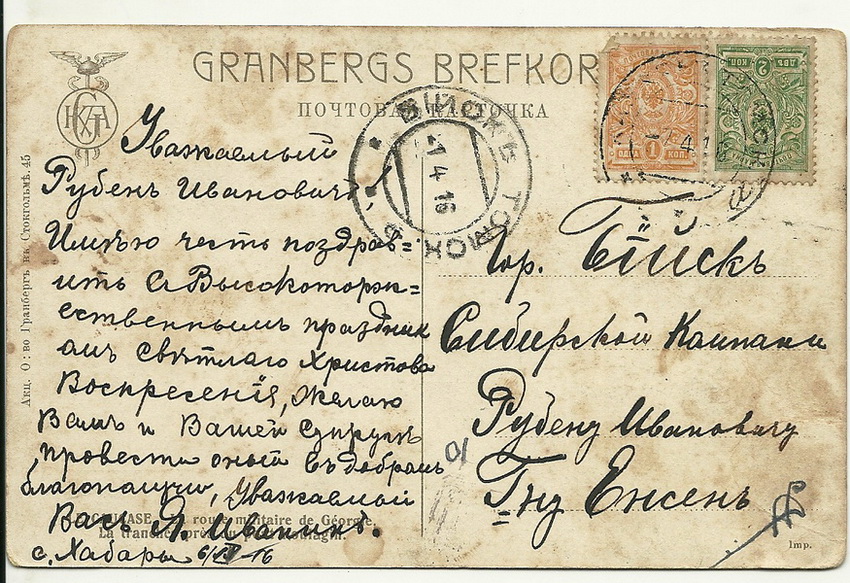 GRANBERGS BREFKOR
ПОЧТОВАЯ КАРТОЧКА
Акц. О:во Гранбергъ въ Стокгольмѣ. 45
БІЙСКЪ ТОМСК
7 4 16
1 КОП.
2 КОП
Уважаемый
Рубенъ Ивановичъ!
Имѣю честь поздрав=
ить съ Высокоторж=
ественнымъ праздник
амъ Свѣтлаго Христова
Воскресенія, желаю
Вамъ и Вашей супругѣ
провести оный въ добрамъ
благополучіи, Уважаемой
Васъ Я. Иванинъ.
с. Хабары 6/IV 16
CAUCASE. La route militaire de Géorgie.
La tranchée près du
гор. Бійскъ
Сибирской Кампани
Рубену Ивановичу
Гну Енсенъ
10
Imp.